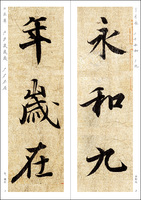 永和九
年歲在